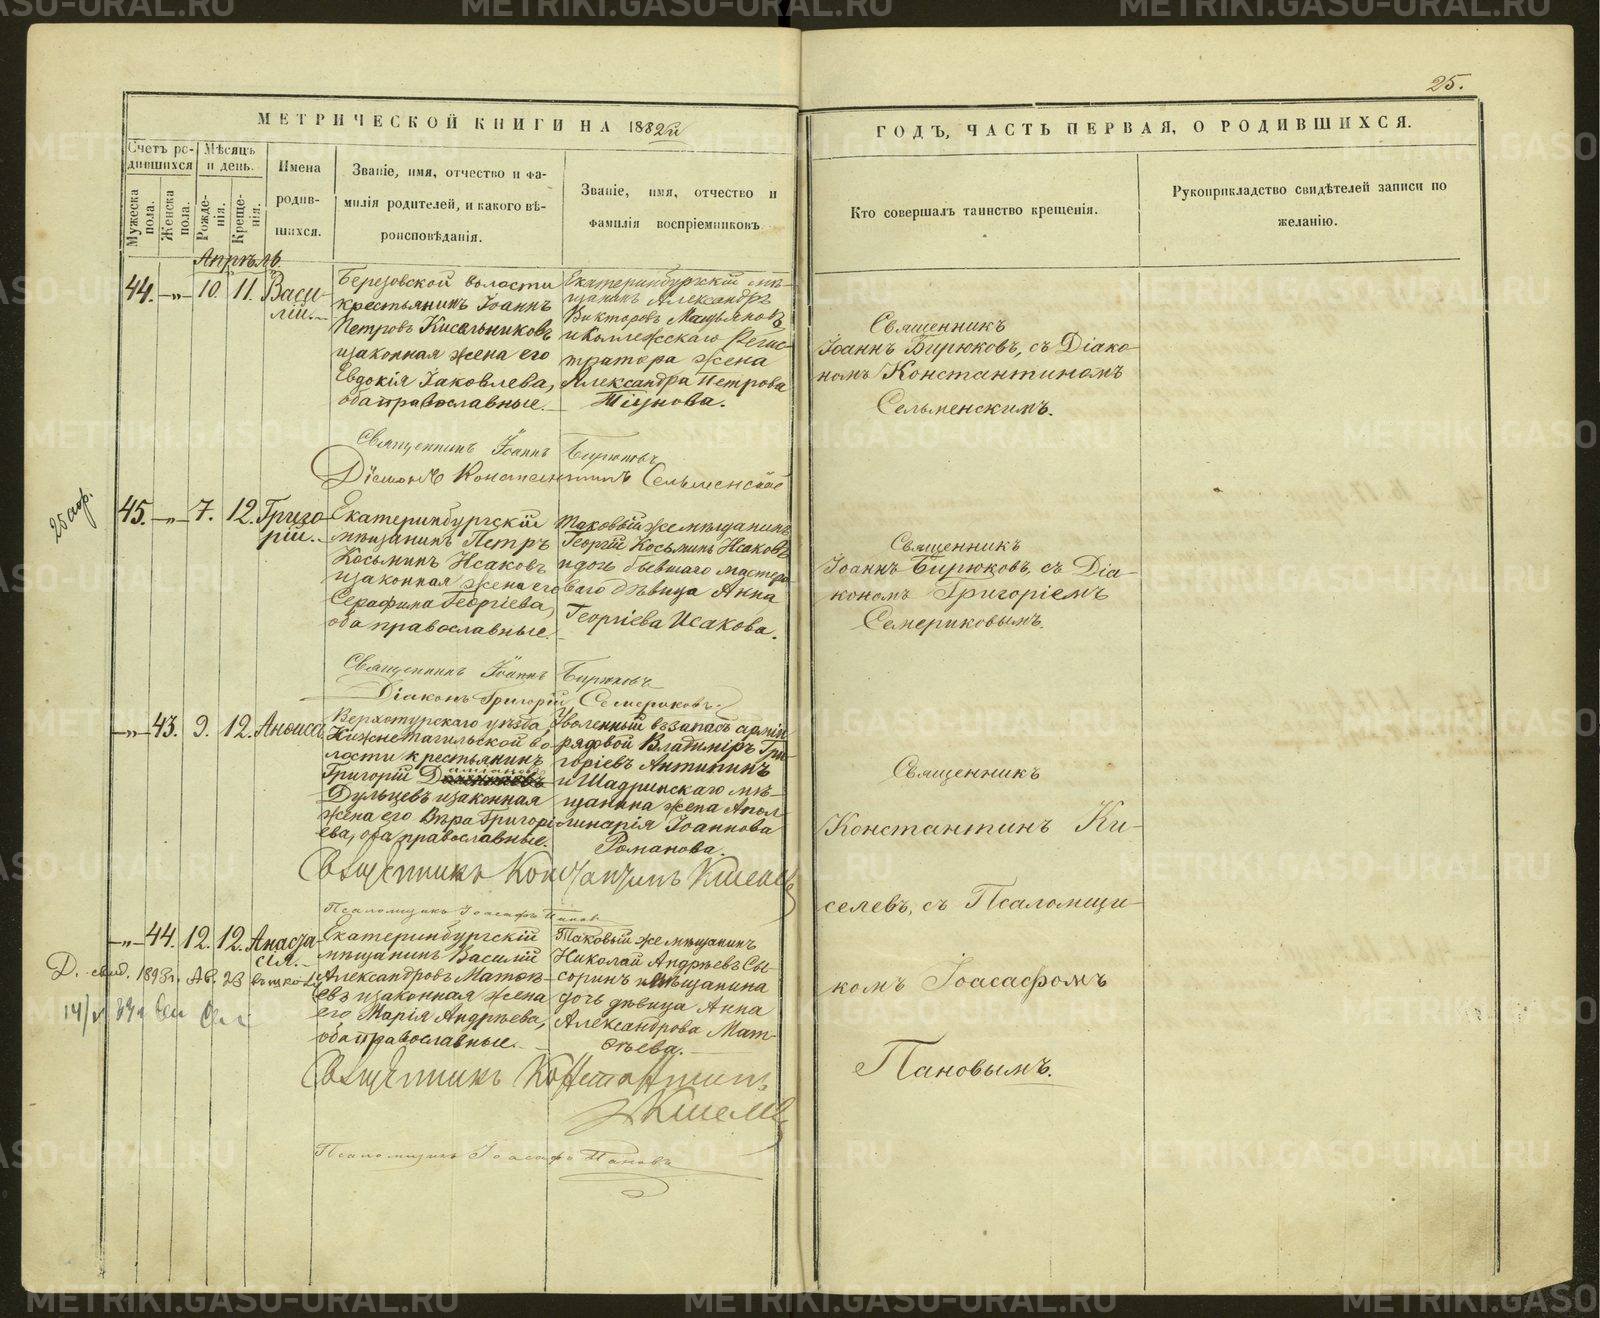 25.
МЕТРИЧЕСКОЙ КНИГИ НА 1882й
ГОДЪ, ЧАСТЬ ПЕРВАЯ, О РОДИВШИХСЯ.
Счетъ ро-
дившихся
Мужеска пола.
Женска пола.
Мѣсяцъ
и день.
Рожде-
нія.
Креще-
нія.
Имена
родив-
шихся.
Званіе, имя, отчество и фа-
милія родителей, и какого вѣ-
роисповѣданія.
Званіе, имя, отчество и
фамилія воспріемниковъ
Кто совершалъ таинство крещенія.
Рукоприкладство свидѣтелей записи по
желанію.
Апрѣль
44. —„— 10. 11. Васи-
лій.
Березовской волости
крестьянинъ Іоаннъ
Петровъ Кисельниковъ
изаконная жена его
Евдокія Іаковлева,
оба православные.
Екатеринбургскій мѣ-
щанинъ Александръ
Викторовъ
и Коллежскаго Регис-
тратора жена
Александра Петрова
Тіунова.
Священникъ
Іоаннъ Бирюковъ, съ Діако-
номъ Константиномъ
Сельменскимъ.
Священникъ Іоаннъ Бирюковъ
Діаконъ Константинъ Сельменскій
25 апр.
45. —„— 7. 12. Григо-
рій.
Екатеринбургскій
мѣщанинъ Петръ
Косминъ Исаковъ
изаконная жена его
Серафима Георгіева,
оба православные.
Таковый же мѣщанинъ
Георгій Косьминъ Исаковъ
и дочь бывшаго мастеро-
ваго дѣвица Анна
Георгіева Исакова.
Священникъ
Іоаннъ Бирюковъ, съ Діа-
кономъ Григоріемъ
Семериковымъ.
Священникъ Іоаннъ Бирюковъ
Діаконъ Григорій Семериковъ
—„— 43. 9. 12. Анѳиса
Верхотурскаго уѣзда,
Нижнетагильской во-
лости крестьянинъ
Григорій
Дульцевъ изаконная
жена его Вѣра Григорі-
ева, оба православные.
Уволенный въ запасъ арміи
рядовой Владиміръ Гри-
горіевъ Антипинъ
и Шадринскаго мѣ-
щанина жена Апол-
линарія Іоаннова
Романова.
Священникъ
Константинъ Ки-
селевъ, съ Псаломщи-
комъ Іоасафомъ
Пановымъ.
Священникъ Константинъ Киселевъ
Псаломщикъ Іоасафъ Пановъ
—„— 44. 12. 12. Анаста-
сія.
Д. свид. 1893г. Ав. 23
Екатеринбургскій
мѣщанинъ Василій
Александровъ Матвѣ-
евъ изаконная жена
его Марія Андрѣева,
оба православные.
Таковый же мѣщанинъ
Николай Андрѣевъ Сы-
соринъ и мѣщанина
дочь дѣвица Анна
Александрова Мат-
вѣева.
Священникъ Константинъ
Киселевъ
Псаломщикъ Іоасафъ Пановъ
METRIKI.GASO-URAL.RU